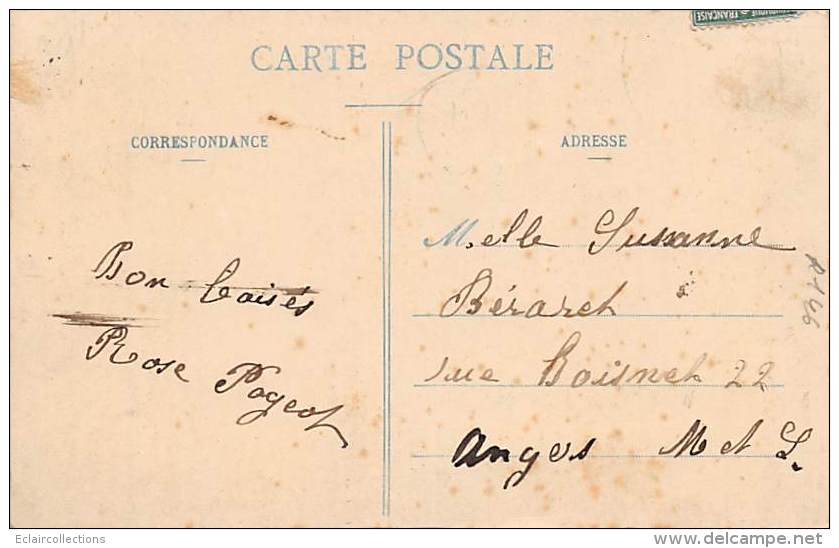 RÉPUBLIQUE FRANÇAISE
CARTE POSTALE
CORRESPONDANCE
ADRESSE
Bon baisés
Rose Pageot
Melle Susanne
Bérarct
rue Boisnet 22
Angers M et L.
Eclaircollections
delcampe.net